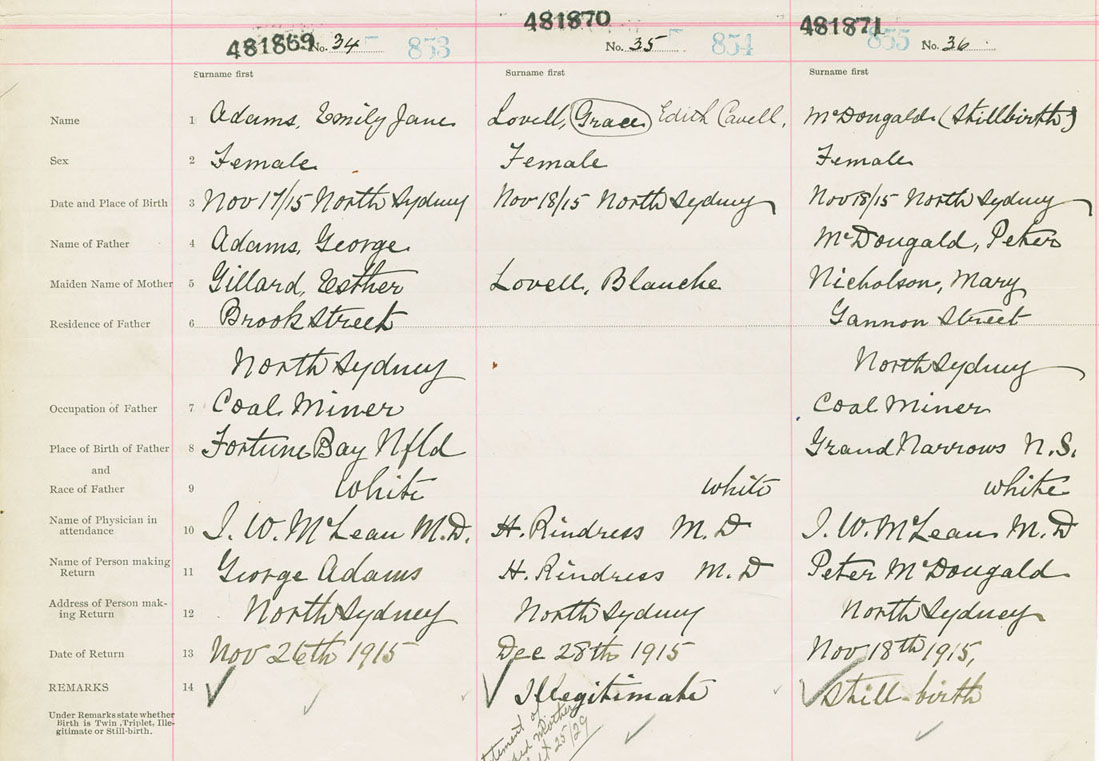 481869 No. 34 853 481870 No. 35 854 481871 855 No. 36
Surname first Surname first Surname first
Name 1 Adams, Emily Jane Lovell, Grace Edith Cavell, McDougald (Stillbirth)
Sex 2 Female Female Female
Date and Place of Birth 3 Nov 17/15 North Sydney Nov 18/15 North Sydney Nov 18/15 North Sydney
Name of Father 4 Adams, George McDougald, Peter
Maiden Name of Mother 5 Gillard, Esther Lovell, Blanche Nicholson, Mary
Residence of Father 6 Brook Street Gannon Street
North Sydney North Sydney
Occupation of Father 7 Coal Miner Coal Miner
Place of Birth of Father 8 Fortune Bay Nfld Grand Narrows N.S.
and
Race of Father 9 White White White
Name of Physician in
attendance 10 J. W. McLean M.D. H. Rindress M.D J. W. McLean M.D
Name of Person making
Return 11 George Adams H. Rindress M.D Peter McDougald
Address of Person mak-
ing Return 12 North Sydney North Sydney North Sydney
Date of Return 13 Nov 26th 1915 Dec 28th 1915 Nov 18th 1915,
REMARKS 14 Illegitimate Still-birth
Under Remarks state whether
Birth is Twin, Triplet, Ille-
gitimate or Still-birth.
Mother
25/29